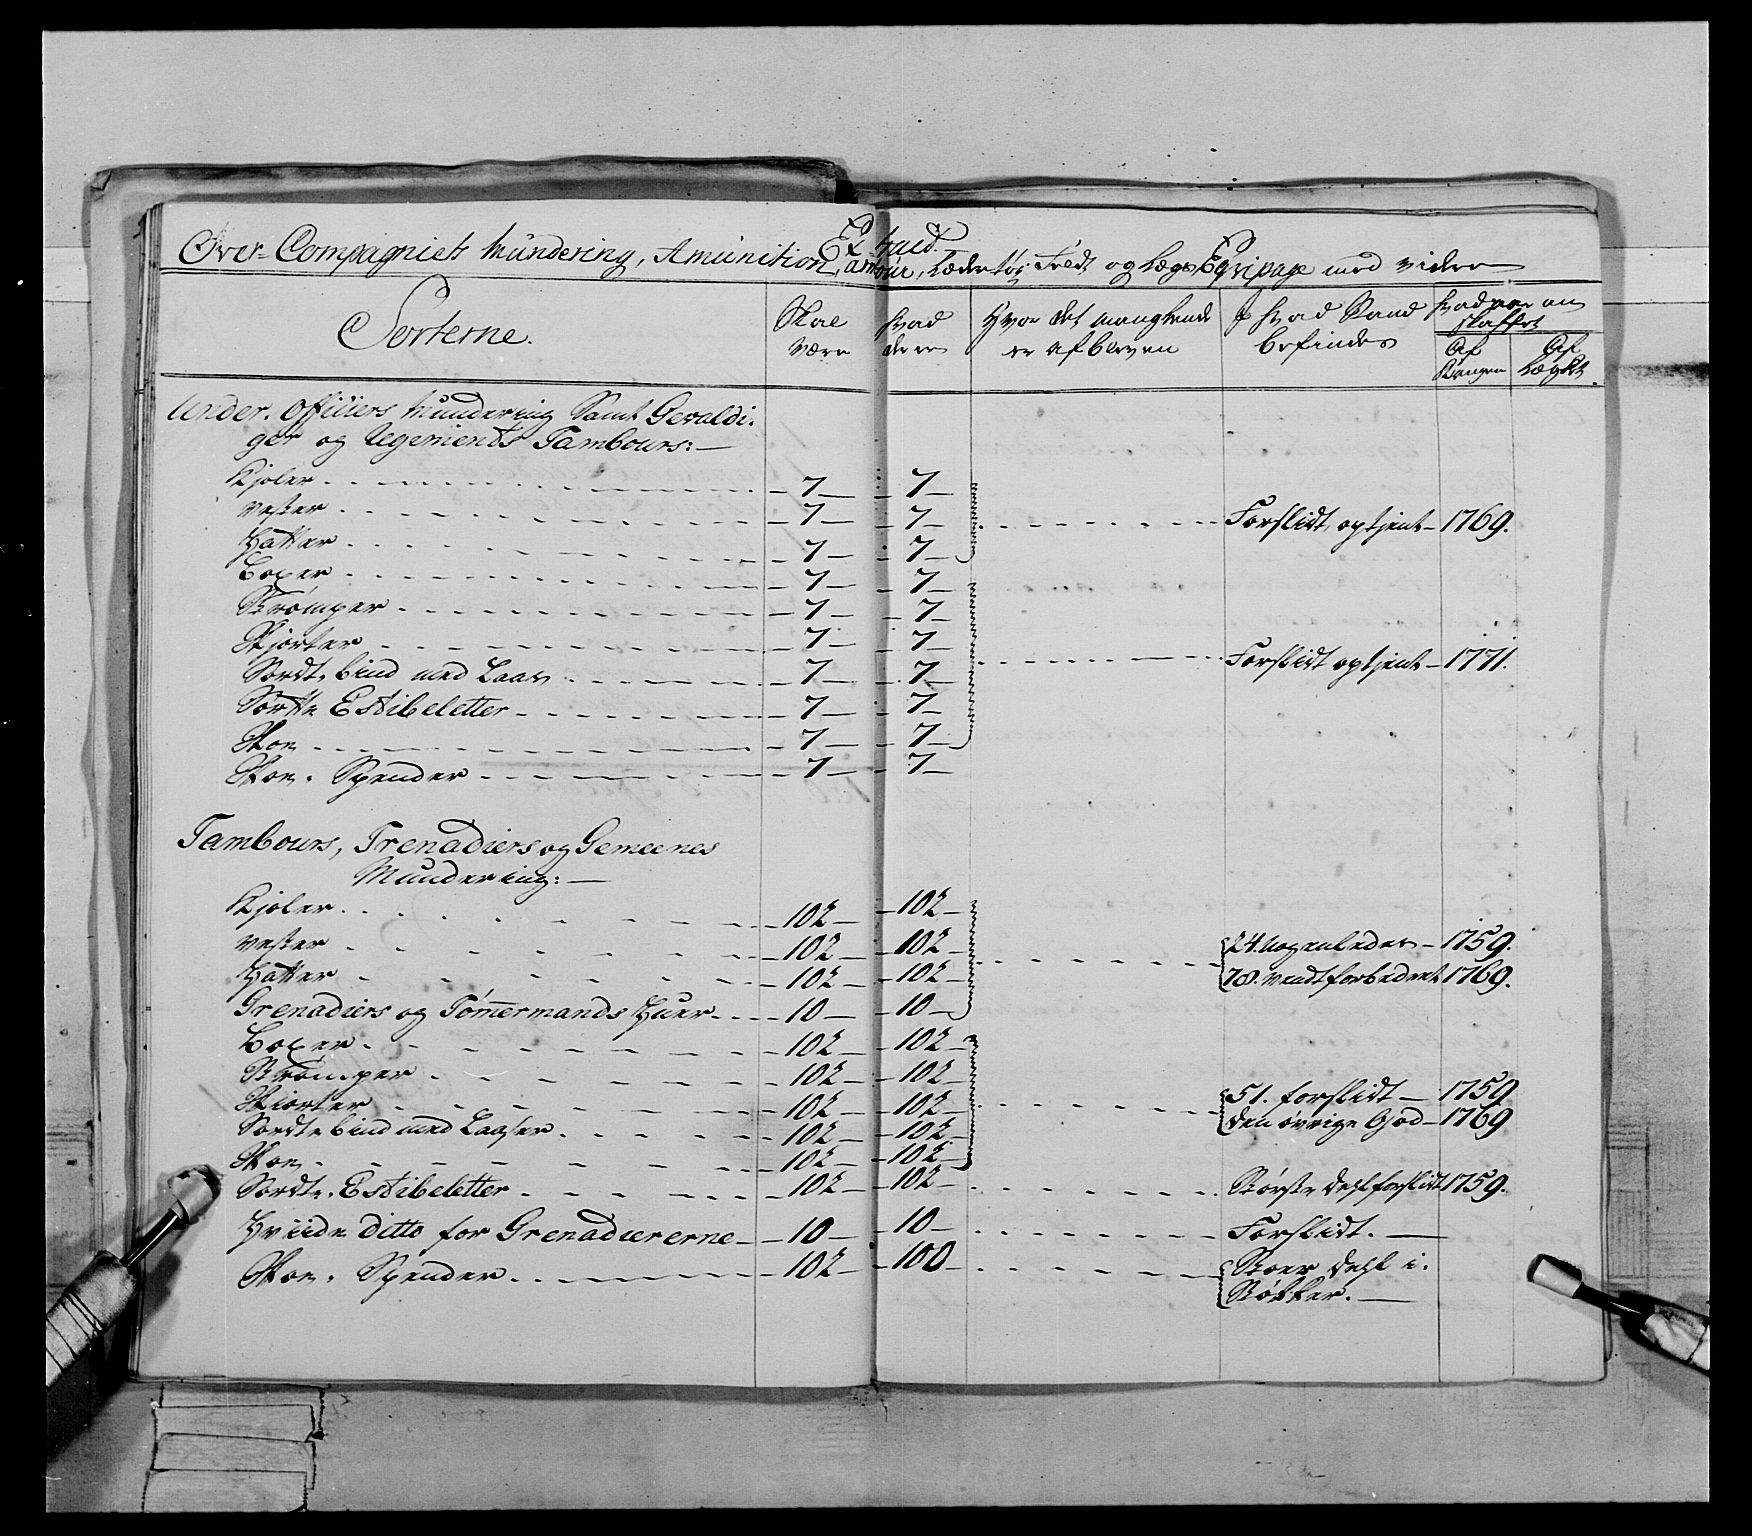 Extract.
Over Compagniets Mundering, Amunition, armour, Lædertøj Feldt og Lægs Eqvipage med videre
Sorterne. Skal være Hvad der er Hvor det manglende er afbleven J hvad Stand befindes Hvad naar an skaffet
Af Kongen Af Lægdet.
Under-Officiers Mundering Samt Gevaldi-
ger og Regements Tambours:—
Kjoler 7 7
Vester 7 7 Forslidt, optjent 1769.
Hatter 7 7
Boxer 7 7
Strømper 7 7
Skjorter 7 7
Sordt-bind med Laas 7 7 Forslidt optjent 1771.
Sortte Estibeletter 7 7
Skoe 7 7
Skoe-Spender 7 7
Tambours, Grenadiers og Gemeenes
Mundering:—
Kjoler 102 102
Vester 102 102 24. 1759.
Hatter 102 102 78. vendt forbedret 1769.
Grenadiers og Tømermands Huer 10 10
Boxer 102 102
Strømper 102 102
Skiorter 102 102 51. forslidt 1759
Sordte bind med Laaser 102 102 den øvrige God 1769
Skoe 102 102
Sordte Estibeletter 102 102 Største deel forslidt 1759.
Hviide ditto for Grenadiererne 10 10 Forslidt.—
Skoe-Spender 102 100 Stoer deel i
Støkker.—